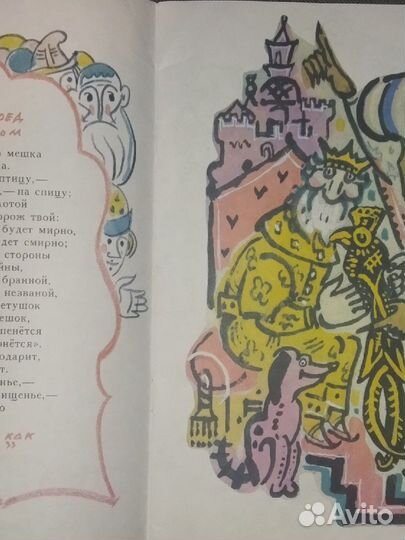 ОЕД
ОМ
мешка
а.
птицу,—
,— на спицу;
лотой
орож твой:
будет мирно,
дет смирно;
стороны
йны,
бранной,
незваной,
етушок
ешок,
пенётся
рнётся».
одарит,
т.
нье,—
ищенье,—
о
как
Avito